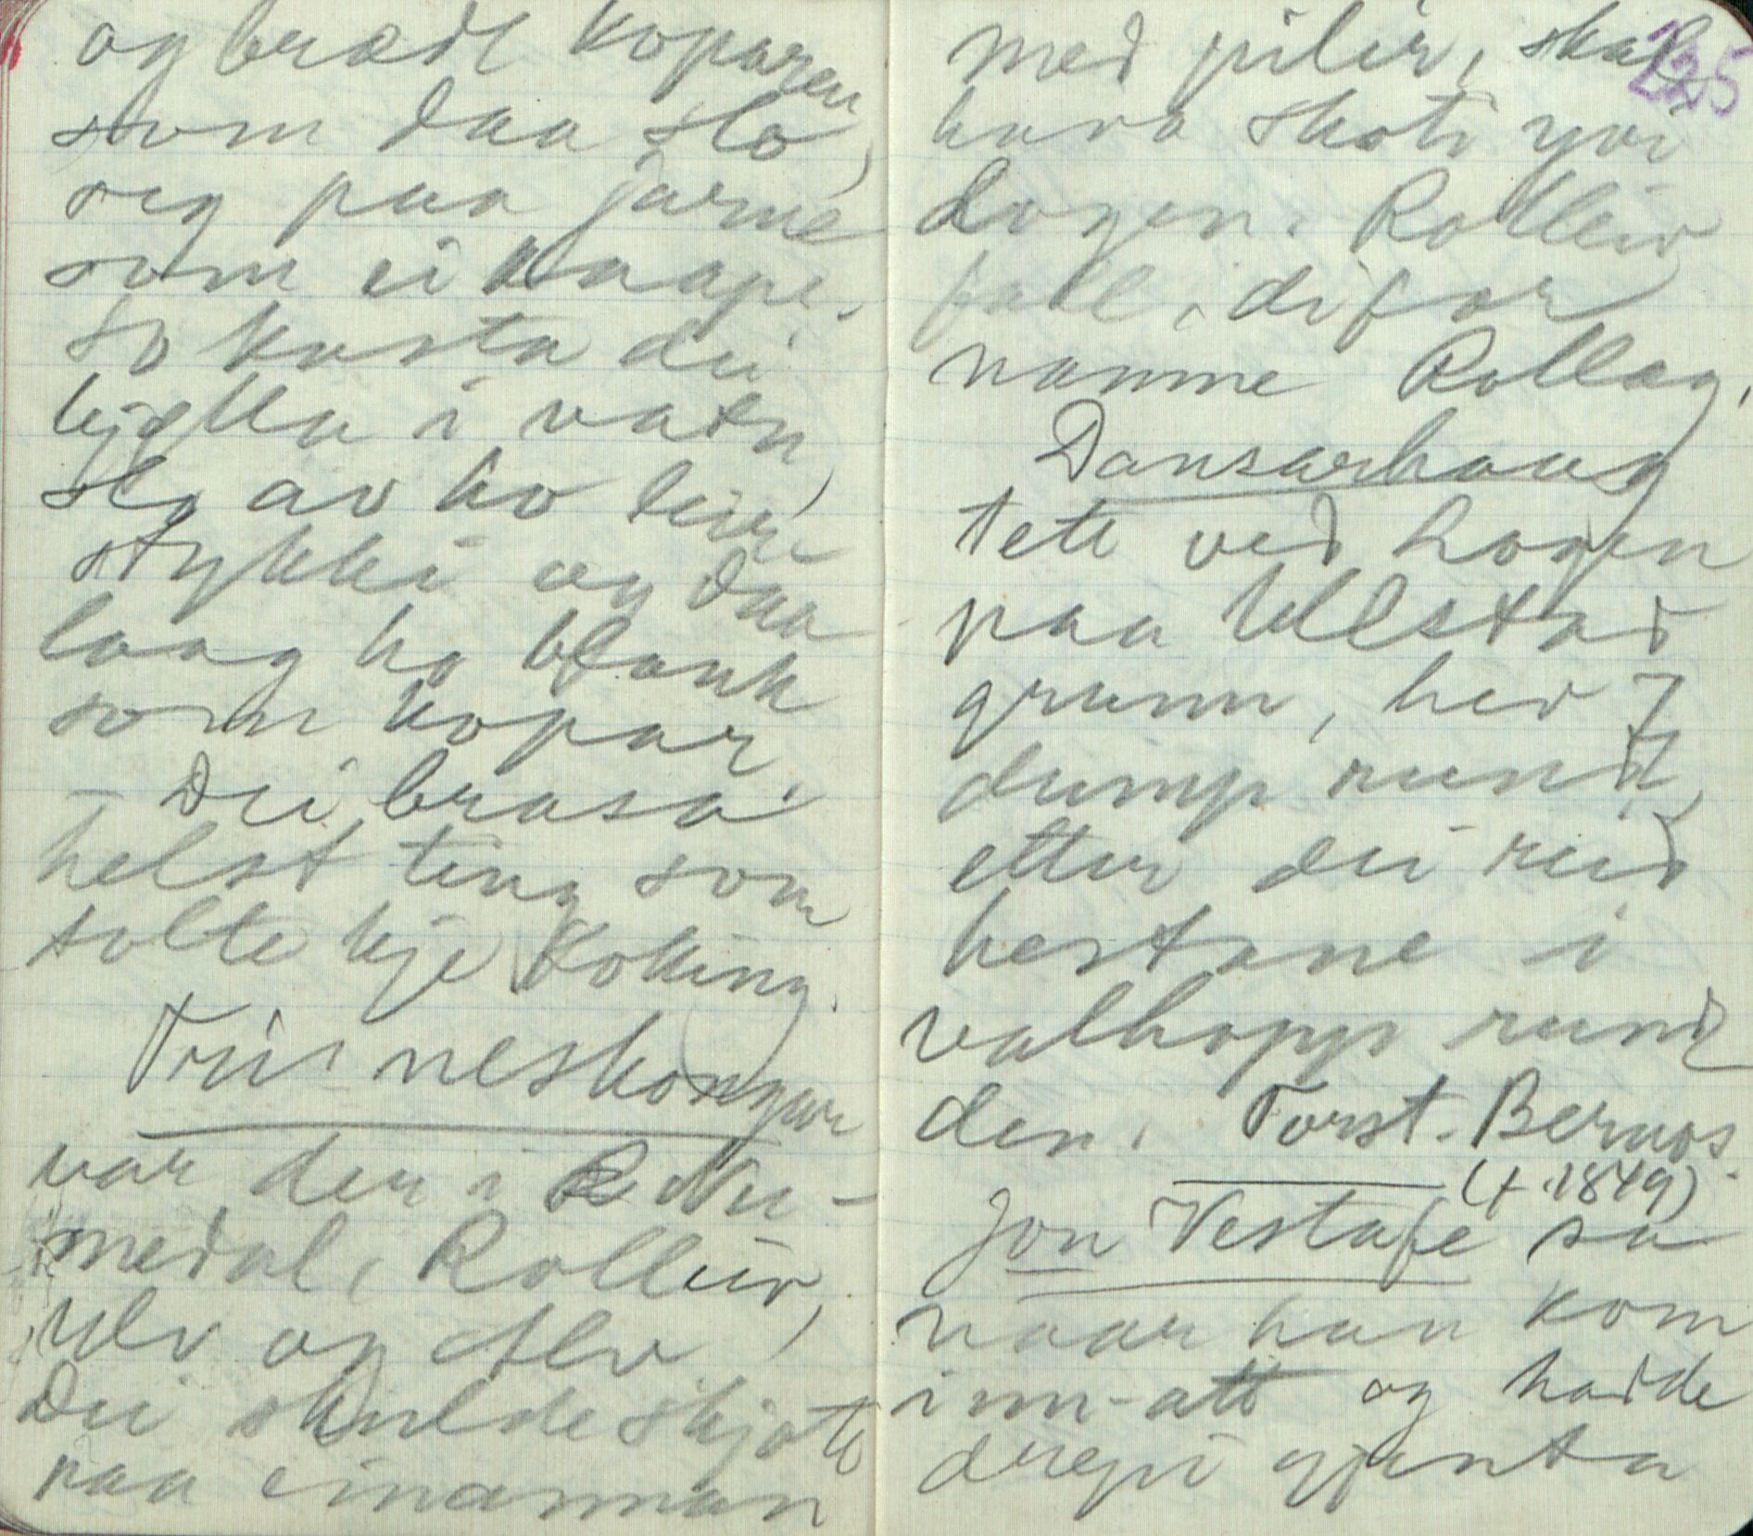 og brædt koparen
som daa slo
seg paa jarne
som ei kaape.
So kasta dei
bjølla i vatn,
slo av ho leir
stykki og daa
laag ho blank
som kopar.
- Dei brasa
helst ting som
tolte kje koking.
Tri neskongar
var der i Nu-
medal, Rolleiv,
Ulv og Alv.
Dei skulde skjote
paa einannan
225
med pilir, skal
hava skoti yvi
Logen. Rolleiv
fall, difor
namne Rollag.
Dansarhaug
tett ved Logen
paa Ulstad
grunn, her 7
dump rundt,
etter dei reid
hestane i
valhopp rundt
den. Torst. Bernos.
(f. 1849)
Jon Vestafe sa
naar han kom
inn-att og hadde
drepi gjenta